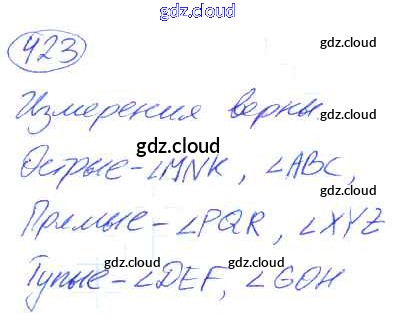 gdz.cloud
423
gdz.cloud
gdz.cloud
Измерения верны
gdz.cloud
Острые - ∠MNK, ∠ABC,
gdz.cloud
gdz.cloud
Прямые - ∠PQR, ∠XYZ
Тупые - ∠DEF, ∠GOH
gdz.cloud
gdz.cloud
gdz.cloud